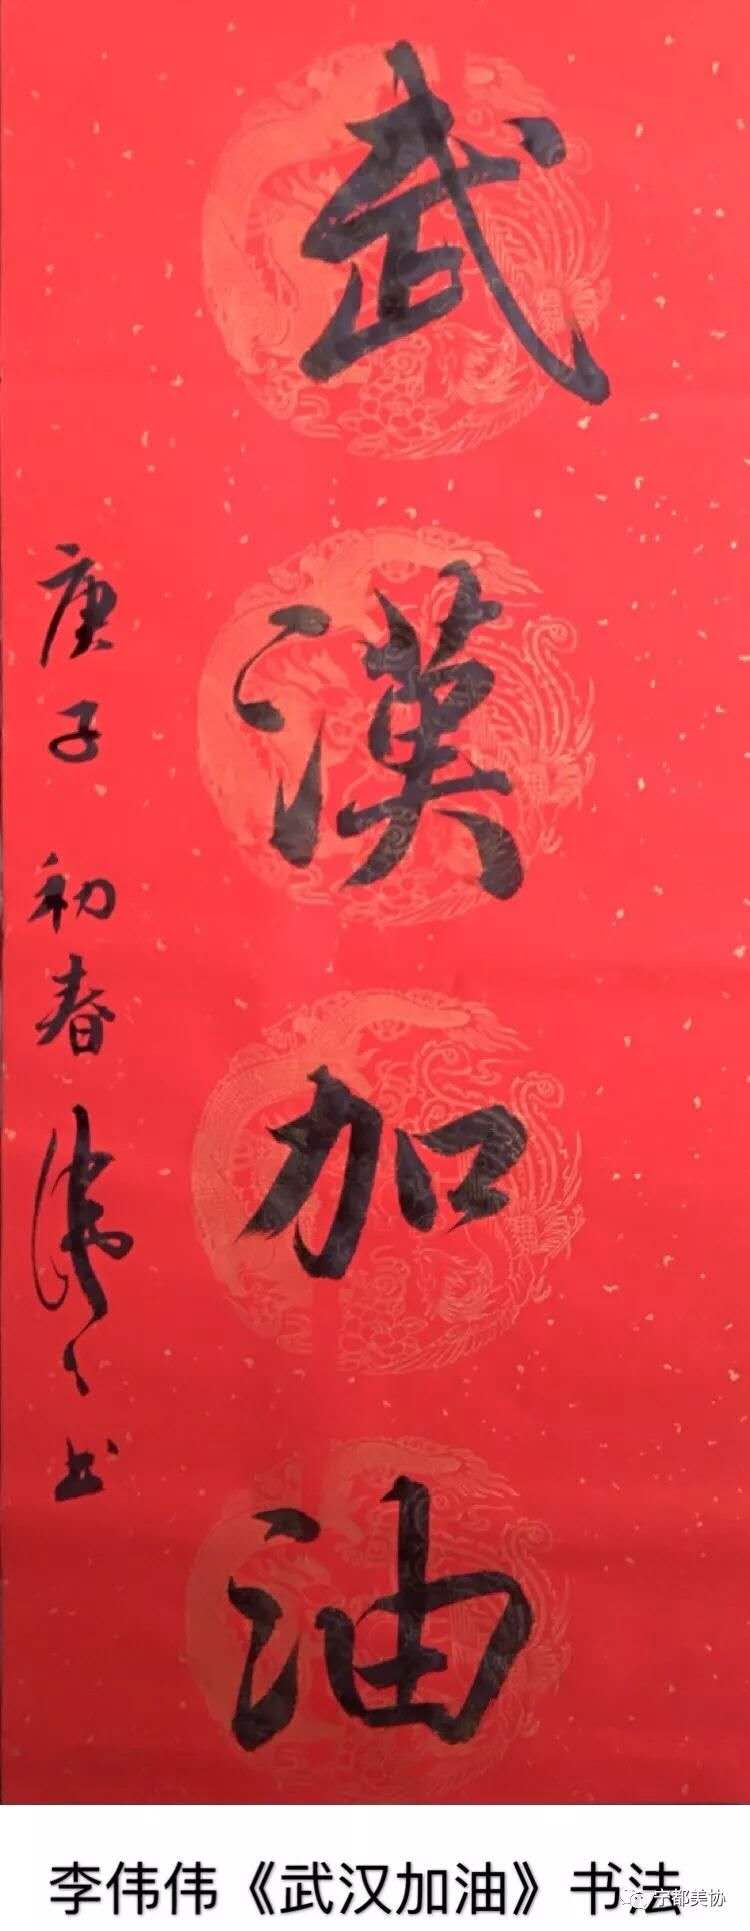 武漢加油
庚子初春偉々书
李伟伟《武汉加油》书法
宁都美协